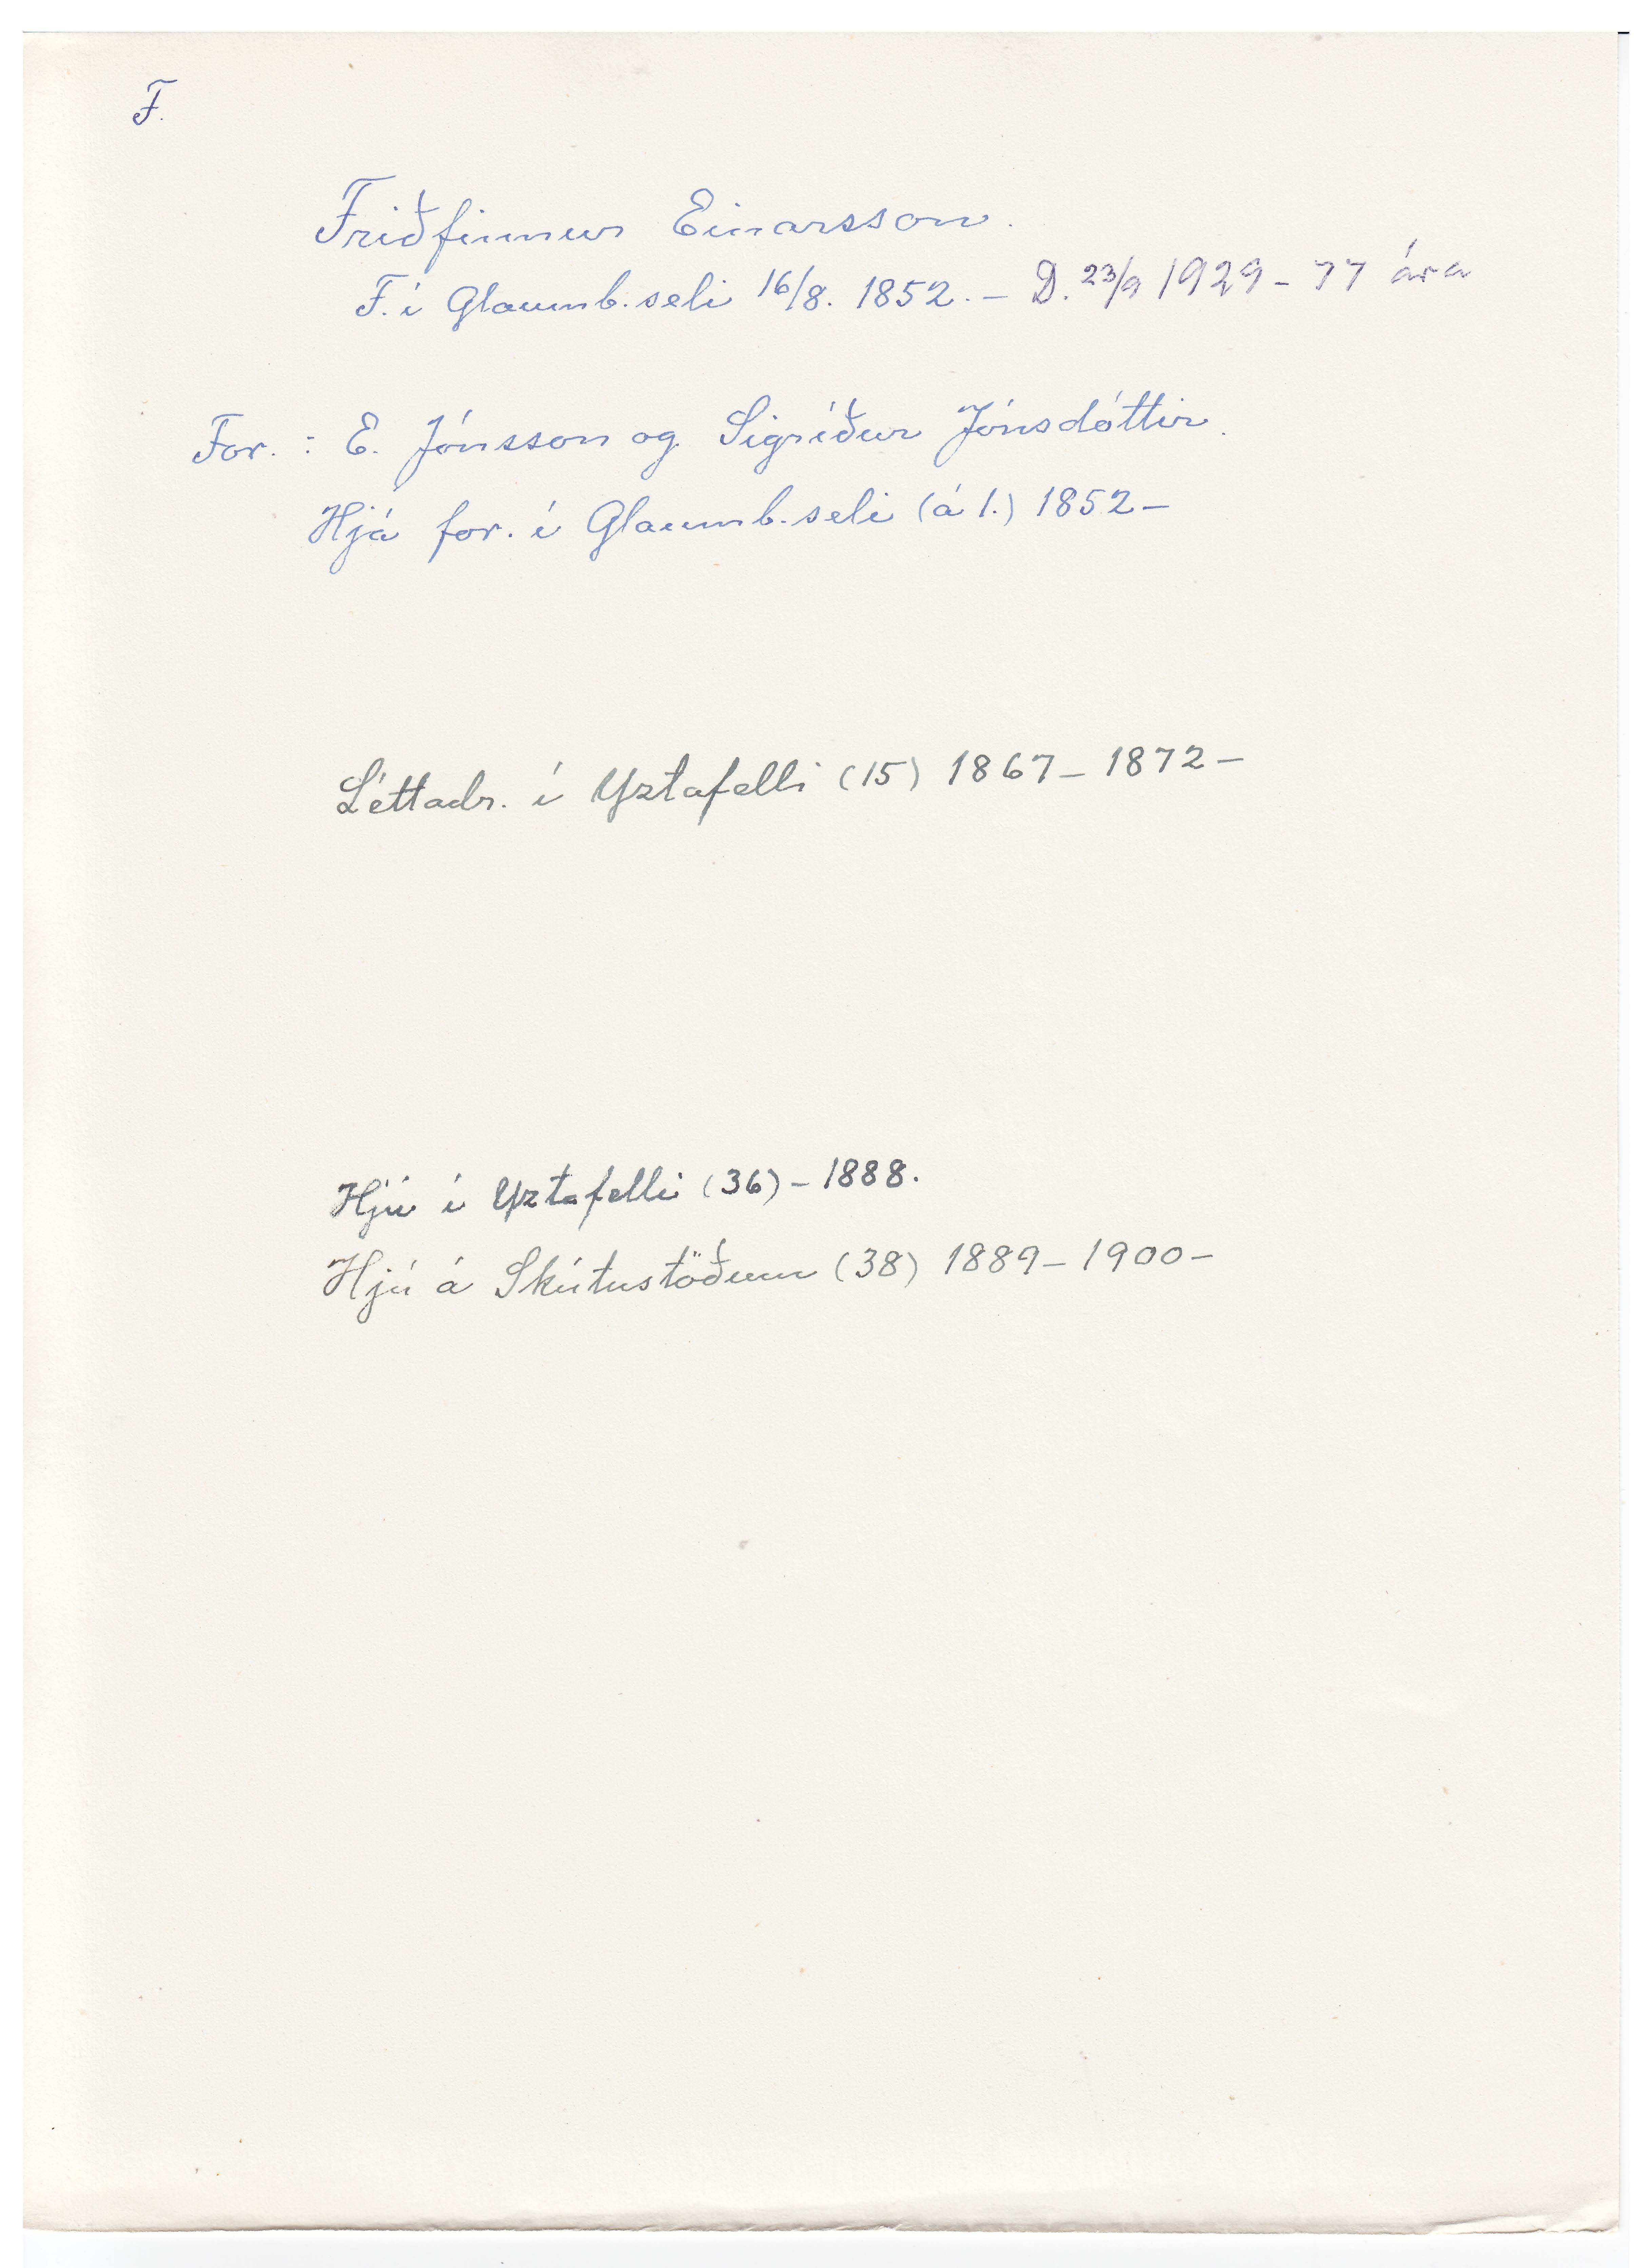 F.
Friðfinnur Einarsson.
F. í Glaumb.seli 16/8. 1852. – D. 23/9 1929 – 77 ára
For. : E. Jónsson og Sigríður Jónsdóttir.
Hjá for. í Glaumb.seli (á 1.) 1852 –
Léttadr. í Yztafelli (15) 1867 – 1872 –
Hjú í Yztafelli (36) – 1888.
Hjú á Skútustöðum (38) 1889 – 1900 –